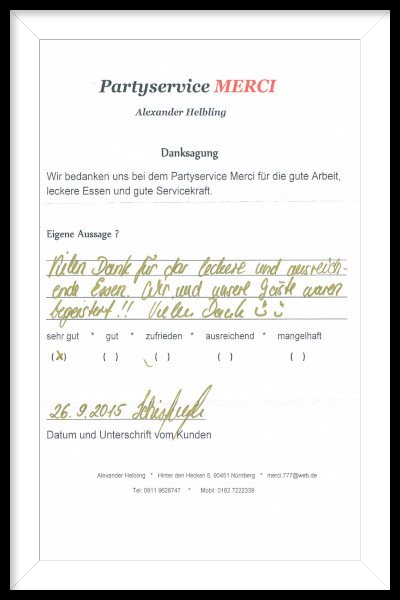 Partyservice MERCI
Alexander Helbling
Danksagung
Wir bedanken uns bei dem Partyservice Merci für die gute Arbeit,
leckere Essen und gute Servicekraft.
Eigene Aussage ?
Vielen Dank für das leckere und ausreich-
ende Essen. Wir und unsere Gäste waren
begeistert!! Vielen Dank
sehr gut * gut * zufrieden * ausreichend * mangelhaft
(X) ( ) ( ) ( ) ( )
26.9.2015
Datum und Unterschrift vom Kunden
Alexander Helbling * Hinter den Hecken 5, 90451 Nürnberg * merci.777@web.de
Tel: 0911 9626747 * Mobil: 0162 7222339